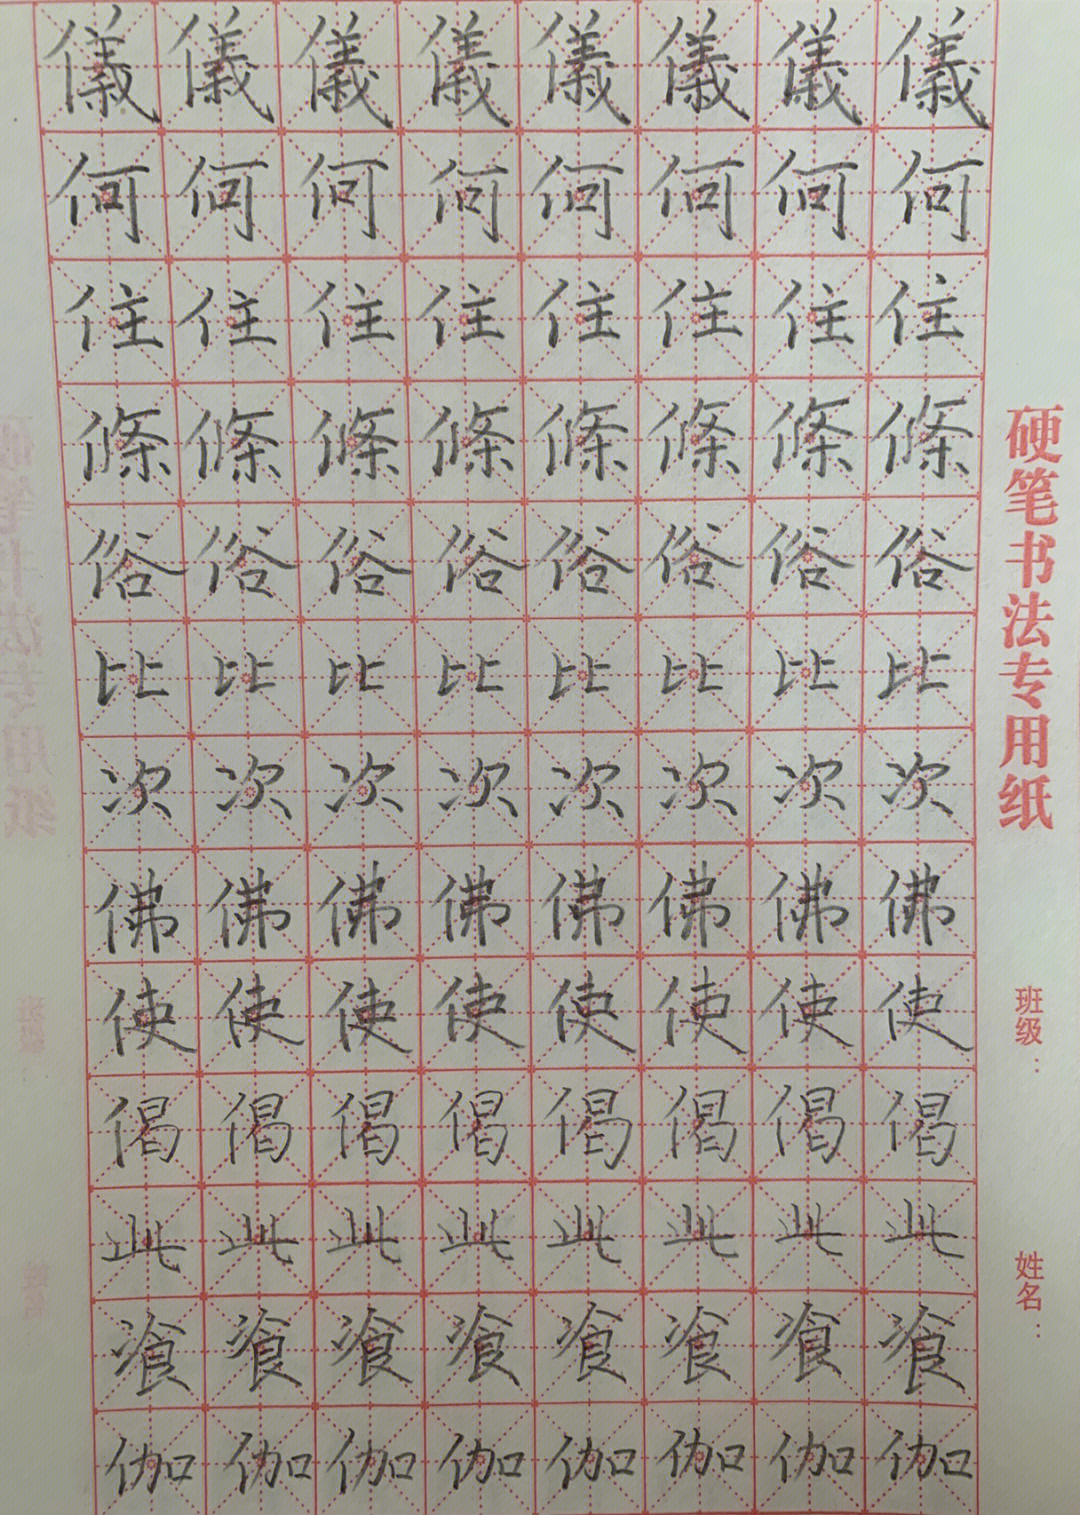 儀儀儀儀儀儀儀儀
何何何何何何何何
住住住住住住住住
條條條條條條條條
俗俗俗俗俗俗俗俗
比比比比比比比比
次次次次次次次次
佛佛佛佛佛佛佛佛
使使使使使使使使
偈偈偈偈偈偈偈偈
此此此此此此此此
飡飡飡飡飡飡飡飡
伽伽伽伽伽伽伽伽
硬笔书法专用纸
班级：
姓名：